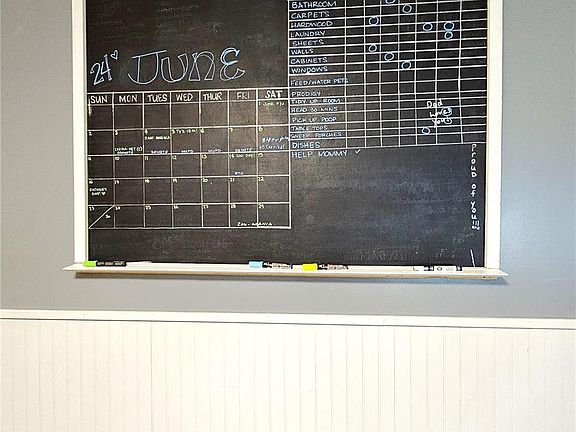 24' JUNE
SUN MON TUES WED THUR FRI SAT
1
2 3 4 5 6 7 8
9 10 11 12 13 14 15
16 17 18 19 20 21 22
FATHERS DAY
23 24 25 26 27 28 29
30
BATHROOM
CARPETS
HARDWOOD
LAUNDRY
SHEETS
WALLS
CABINETS
WINDOWS
FEED/WATER PETS
PRODIGY
TIDY UP ROOM
READ 30 MINS
PICK UP POOP
TABLE TOPS
SWEEP PORCHES
DISHES
HELP MOMMY ✓
Dad
Loves
You
Proud of you!!!